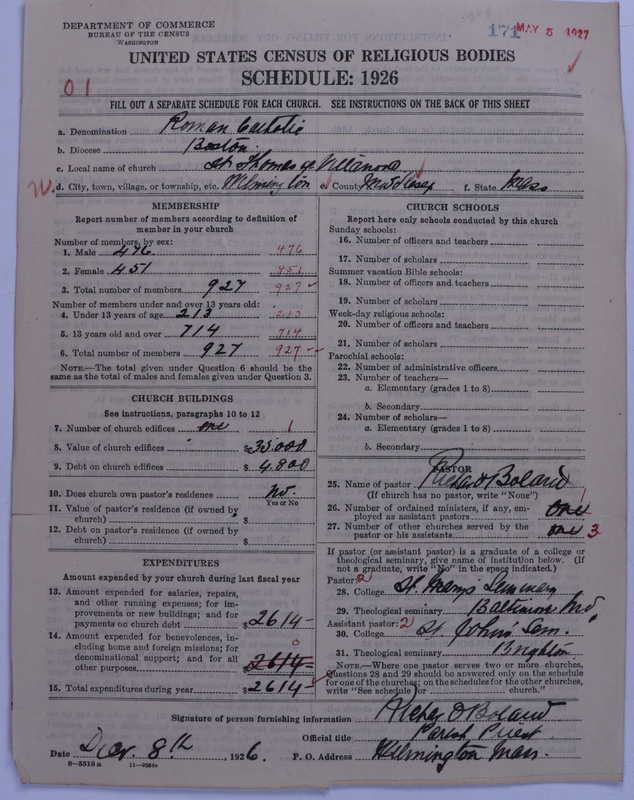 DEPARTMENT OF COMMERCE
BUREAU OF THE CENSUS
WASHINGTON
171 MAY 5 1927
UNITED STATES CENSUS OF RELIGIOUS BODIES
SCHEDULE: 1926
01
FILL OUT A SEPARATE SCHEDULE FOR EACH CHURCH. SEE INSTRUCTIONS ON THE BACK OF THIS SHEET
a. Denomination Roman Catholic
b. Diocese Boston
c. Local name of church St Thomas of Villanova
d. City, town, village, or township, etc. Wilmington e. County Middlesex f. State Mass
MEMBERSHIP
Report number of members according to definition of member in your church
Number of members, by sex:
1. Male 476 476
2. Female 451 451
3. Total number of members 927 927
Number of members under and over 13 years old:
4. Under 13 years of age 213 213
5. 13 years old and over 714 714
6. Total number of members 927 927
NOTE.—The total given under Question 6 should be the same as the total of males and females given under Question 3.
CHURCH BUILDINGS
See instructions, paragraphs 10 to 12
7. Number of church edifices one 1
8. Value of church edifices $35.000
9. Debt on church edifices $4.800
10. Does church own pastor's residence No.
Yes or No
11. Value of pastor's residence (if owned by church) $
12. Debt on pastor's residence (if owned by church) $
EXPENDITURES
Amount expended by your church during last fiscal year
13. Amount expended for salaries, repairs, and other running expenses; for improvements or new buildings; and for payments on church debt $2614-
14. Amount expended for benevolences, including home and foreign missions; for denominational support; and for all other purposes 0 $2614-
15. Total expenditures during year $2614-
CHURCH SCHOOLS
Report here only schools conducted by this church
Sunday schools:
16. Number of officers and teachers
17. Number of scholars
Summer vacation Bible schools:
18. Number of officers and teachers
19. Number of scholars
Week-day religious schools:
20. Number of officers and teachers
21. Number of scholars
Parochial schools:
22. Number of administrative officers
23. Number of teachers—
a. Elementary (grades 1 to 8)
b. Secondary
24. Number of scholars—
a. Elementary (grades 1 to 8)
b. Secondary
PASTOR
25. Name of pastor Richard O Boland
(If church has no pastor, write "None")
26. Number of ordained ministers, if any, employed as assistant pastors one 1
27. Number of other churches served by the pastor or his assistants one 3
If pastor (or assistant pastor) is a graduate of a college or theological seminary, give name of institution below. (If not a graduate, write "No" in the space indicated.)
Pastor: 2
28. College St. Marys Seminary
29. Theological seminary Baltimore Md.
Assistant pastor: 2
30. College St. Johns Sem.
31. Theological seminary Brighton
NOTE.—Where one pastor serves two or more churches, Questions 28 and 29 should be answered only on the schedule for one of the churches; on the schedules for the other churches, write "See schedule for church."
Signature of person furnishing information Richard O Boland
Official title Parish Priest
Date Dec. 8th, 1926. P. O. Address Wilmington Mass.
8—5518a 11—9354a